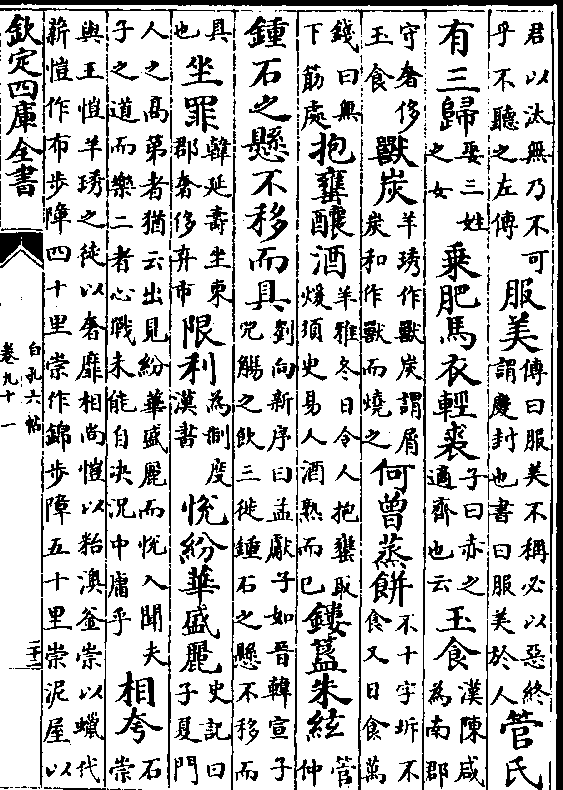 君以汰無乃不可
乎不聽之左傳
服美
傳曰服美不稱必以惡終
謂慶封也書曰服美於人
管氏
有三歸
娶三姓
之女
乗肥馬衣輕裘
子曰赤之
適齊也云
玉食
漢陳咸
為南郡
守奢侈
玉食
獸炭
羊琇作獸炭謂屑
炭和作獸而燒之
何曾蒸餅
不十字坼不
食又日食萬
錢曰無
下筯處
抱甕釀酒
羊雅冬日令人抱甕取
煖須史易人酒熟而已
鏤簋朱紘
管
仲
鍾石之懸不移而具
劉向新序曰孟獻子如晉韓宣子
兕觴之飲三徙鍾石之懸不移而
具
也
坐罪
韓延壽坐東
郡奢侈弃市
限利
為制度
漢書
悅紛華盛麗
史記曰
子夏門
人之高第者猶云出見紛華盛麗而悅入聞夫
子之道而樂二者心戰未能自決況中庸乎
相夸
石
崇
與王愷羊琇之徒以奢靡相尚愷以粘澳釜崇以蠟代
薪愷作布步障四十里崇作錦步障五十里崇泥屋以
欽定四庫全書
白孔六帖
卷九十一